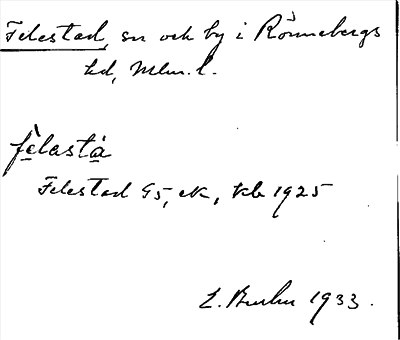 Felestad, sn och by i Rönnebergs
hd, Mlm. l.
fèlastà
Felestad G5, ek, kb 1925
1933.